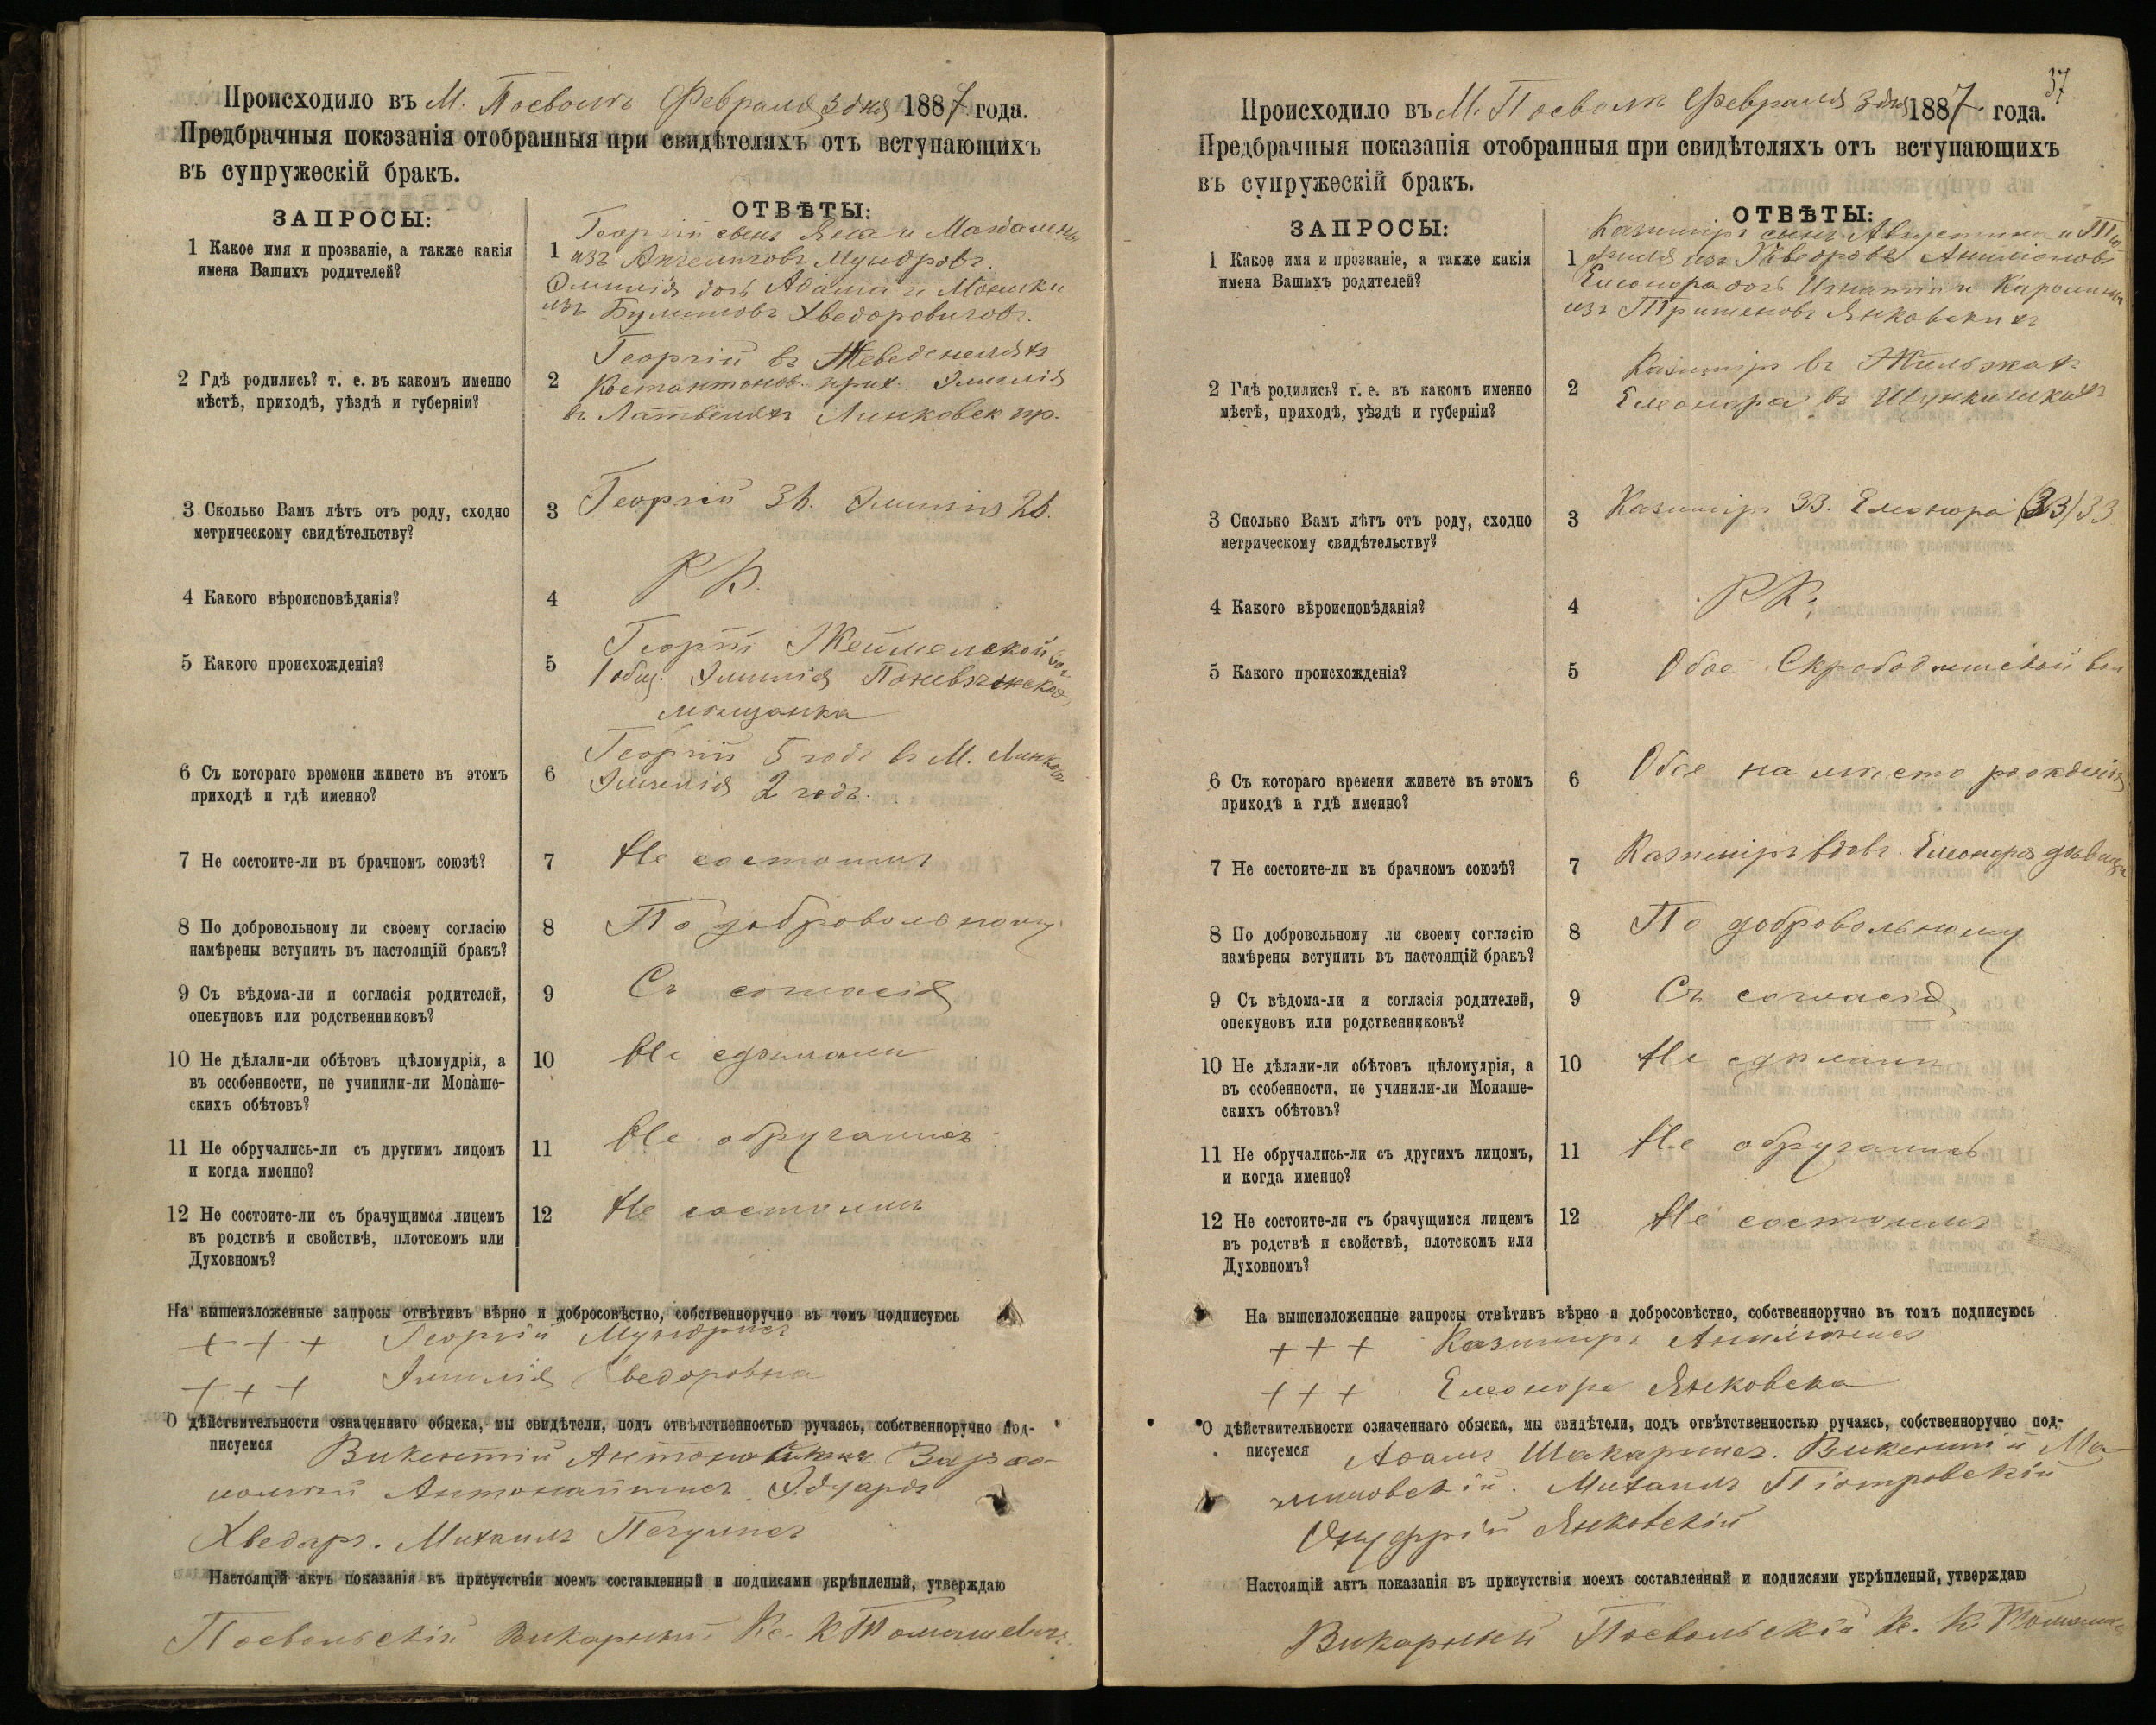 Происходило въ М. Посволѣ Февраля 3 дня 1887 года.
Предбрачныя показанія отобранныя при свидѣтеляхъ отъ вступающихъ
въ супружескій бракъ.
ЗАПРОСЫ:
ОТВѢТЫ:
1 Какое имя и прозваніе, а также какія
имена Вашихъ родителей?
1 Георгій сынъ Яна и Магдалены
изъ Мундровъ.
Эмилія дочь Адама и
изъ Хведоровичовъ.
2 Гдѣ родились? т. е. въ какомъ именно
мѣстѣ, приходѣ, уѣздѣ и губерніи?
2 Георгій въ
прих. Эмилія
въ Линковск пр.
3 Сколько Вамъ лѣтъ отъ роду, сходно
метрическому свидѣтельству?
3 Георгій Эмилія
4 Какого вѣроисповѣданія?
4 Р К.
5 Какого происхожденія?
5 Георгій Жеймельской вол
1 общ. Эмилія Поневѣжская
мѣщанка
6 Съ котораго времени живете въ этомъ
приходѣ и гдѣ именно?
6 Георгій 5 годъ въ М.
Эмилія 2 годъ.
7 Не состоите-ли въ брачномъ союзѣ?
7 Не состоимъ
8 По добровольному ли своему согласію
намѣрены вступить въ настоящій бракъ?
8 По добровольному
9 Съ вѣдома-ли и согласія родителей,
опекуновъ или родственниковъ?
9 Съ согласія
10 Не дѣлали-ли обѣтовъ цѣломудрія, а
въ особенности, не учинили-ли Монаше-
скихъ обѣтовъ?
10 Не сдѣлали
11 Не обручались-ли съ другимъ лицомъ
и когда именно?
11 Не обручались
12 Не состоите-ли съ брачущимся лицемъ
въ родствѣ и свойствѣ, плотскомъ или
Духовномъ?
12 Не состоимъ
На вышеизложенные запросы отвѣтивъ вѣрно и добросовѣстно, собственноручно въ томъ подписуюсь
+ + + Георгій Мундрисъ
+ + + Эмилія Хведоровна
О дѣйствительности означеннаго обыска, мы свидѣтели, подъ отвѣтственностью ручаясь, собственноручно под-
писуемся Викентій
Антонайтисъ Эдуардъ
Хведаръ. Михаилъ
Настоящій актъ показанія въ присутствіи моемъ составленный и подписями укрѣпленый, утверждаю
Посвольскій Викарный Кс. К Томашевичъ
37
Происходило въ М. Посволѣ Февраля 3 дня 1887 года.
Предбрачныя показанія отобранныя при свидѣтеляхъ отъ вступающихъ
въ супружескій бракъ.
ЗАПРОСЫ:
ОТВѢТЫ:
1 Какое имя и прозваніе, а также какія
имена Вашихъ родителей?
1 Казиміръ сынъ Августина и
изъ
Елеонора дочь Игнатія и Каролины
изъ Янковскихъ
2 Гдѣ родились? т. е. въ какомъ именно
мѣстѣ, приходѣ, уѣздѣ и губерніи?
2 Казиміръ въ
Елеонора въ
3 Сколько Вамъ лѣтъ отъ роду, сходно
метрическому свидѣтельству?
3 Казиміръ 33. Елеонора (33) 33
4 Какого вѣроисповѣданія?
4 Р К.
5 Какого происхожденія?
5 Обое Скрободишской вол
6 Съ котораго времени живете въ этомъ
приходѣ и гдѣ именно?
6 Обое на мѣсто рожденія
7 Не состоите-ли въ брачномъ союзѣ?
7 Казиміръ вдовъ. Елеонора дѣвица
8 По добровольному ли своему согласію
намѣрены вступить въ настоящій бракъ?
8 По добровольному
9 Съ вѣдома-ли и согласія родителей,
опекуновъ или родственниковъ?
9 Съ согласія
10 Не дѣлали-ли обѣтовъ цѣломудрія, а
въ особенности, не учинили-ли Монаше-
скихъ обѣтовъ?
10 Не сдѣлали
11 Не обручались-ли съ другимъ лицомъ,
и когда именно?
11 Не обручались
12 Не состоите-ли съ брачущимся лицемъ
въ родствѣ и свойствѣ, плотскомъ или
Духовномъ?
12 Не состоимъ
На вышеизложенные запросы отвѣтивъ вѣрно и добросовѣстно, собственноручно въ томъ подписуюсь
+ + + Казиміръ
+ + + Елеонора Янковска
О дѣйствительности означеннаго обыска, мы свидѣтели, подъ отвѣтственностью ручаясь, собственноручно под-
писуемся Адамъ Шакарнисъ. Викентій Ма-
линовскій. Михаилъ Піотровскій
Онуфрій Янковскій
Настоящій актъ показанія въ присутствіи моемъ составленный и подписями укрѣпленый, утверждаю
Викарный Посвольскій К. К